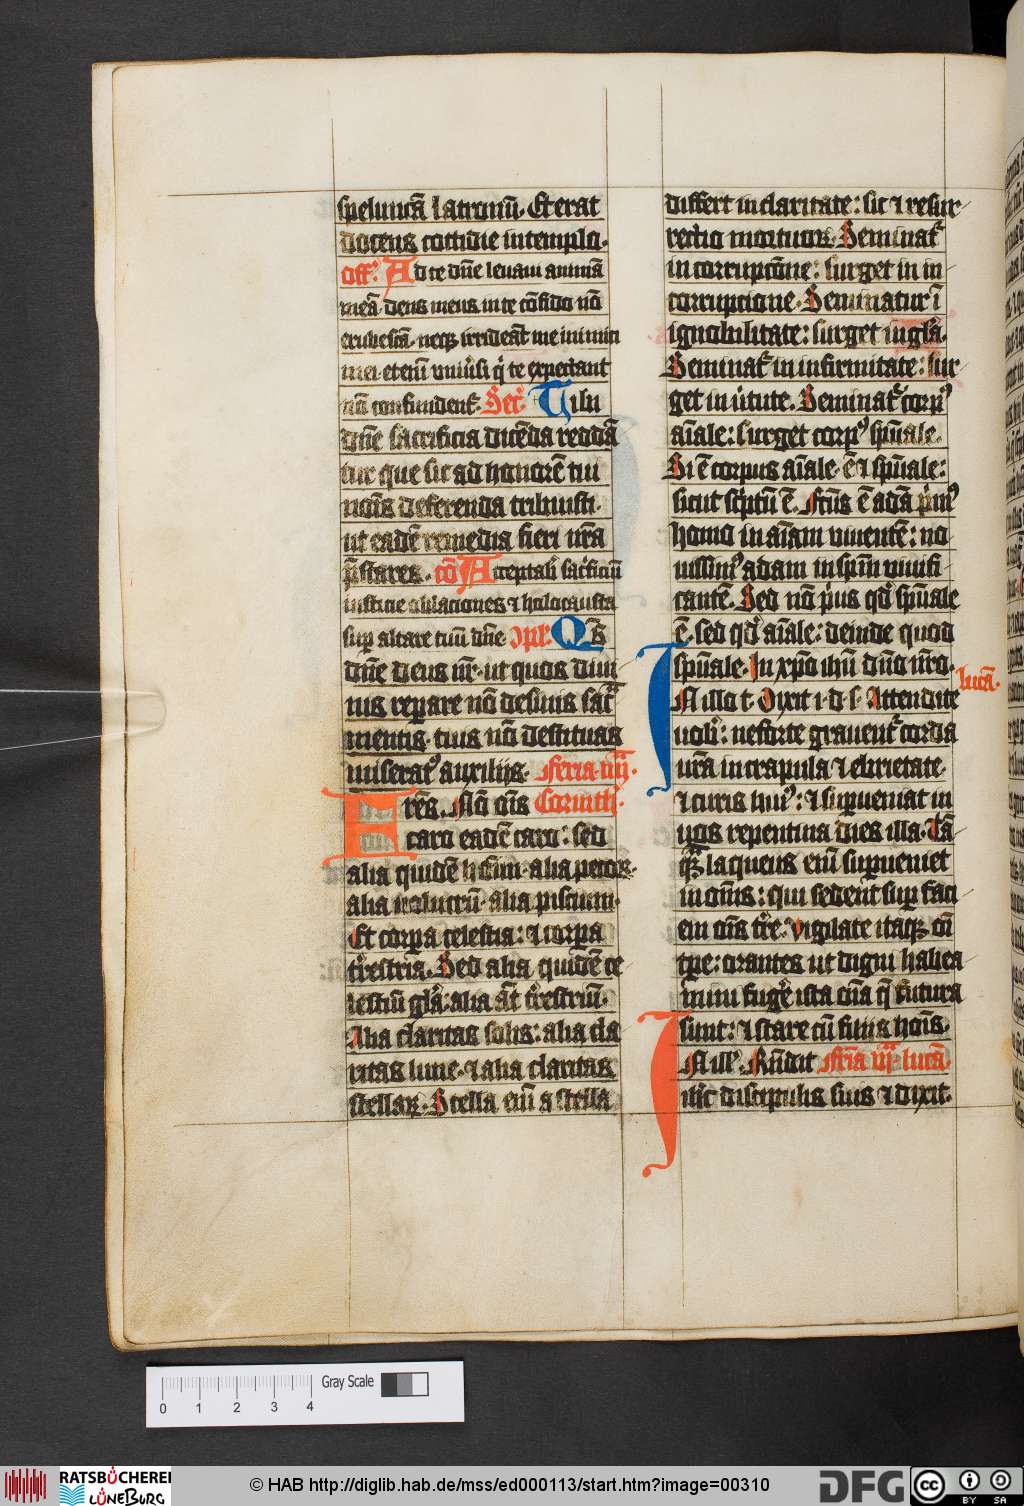 speluncā latronū. Et erat
docens cottidie in templo.
off̄. Ad te dn̄e levavi animā
meā. deus meus in te cōfido nō
erubescā. neq; irrideāt me inimici
mei. etenī universi q̇ te expectant
nō confundent᷑. Secr̄. Tibi
dn̄e sacrificia dicēda reddā
tur que sic ad honorē tui
noīs deferenda tribuisti.
ut eadē remedia fieri nr̄a
p̄stares. cō Acceptab̄ sac̓ficiū
iusticie oblaciones ⁊ holocausta
sup altare tuū dn̄e. ɔpl̄. Qs̄
dn̄e deus nr̄. ut quos divi
nis reparare nō desinis sac̄
mentis. tuis nō destituas
miserat᷒ auxilijs. Feria iiij.
Fres. Nō oīs Corinth̄.
caro eadē caro: sed
alia quidē hoīm. alia pecoꝝ.
alia volucrū. alia piscium.
Et corpa celestia: ⁊ corpa
tr̄estria. Sed alia quidē ce
lestiū gl̄a: alia aūt tr̄estriū.
Alia claritas solis: alia cla
ritas lune. ⁊ alia claritas
stellaꝝ. Stella enī a stella
differt in claritate: sic ⁊ resur
rectio mortuoꝝ. Seminat᷑
in corrupcōne: surget in in
corrupcione. Seminatur ī
ignobilitate: surget in gl̄a.
Seminat᷑ in infirmitate: sur
get in v̓tute. Seminat᷑ corp᷒
aīale: surget corp᷒ spūale.
Si ē corpus aīale. ē ⁊ spūale:
sicut sc̓ptū ē. Fc̄us ē adā p̓m᷒
homo in aīam viventē: no
vissim᷒ adam in spm̄ vivifi
cantē. Sed nō p̓us qd̄ spūale
ē. sed qd̄ aīale: deinde quod
spūale. In xp̄o ihū dn̄o nr̄o.
In illo t. Dixit i. d. s. Attendite lucā.
vob̄: ne forte gravent᷑ corda
vr̄a in crapula ⁊ ebrietate.
⁊ curis hui᷒: ⁊ supveniat in
vos repentina dies illa. Tā
q̄ laqueus enī supveniet
in om̄s: qui sedent sup faci
em oīs tr̄e. Vigilate itaq; oī
tpe: orantes ut digni habea
mini fug̓e ista oīa q̄ futura
sunt: ⁊ stare cū filijs hoīs.
In ill᷒. Rn̄dit Fr̄ia vj. lucā.
ih̄c discipulis suis ⁊ dixit.
0 1 2 3 4 Gray Scale
RATSBÜCHEREI LÜNEBURG
© HAB http://diglib.hab.de/mss/ed000113/start.htm?image=00310
DFG cc BY SA